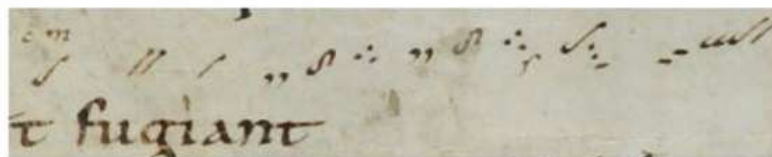 em
t fugiant